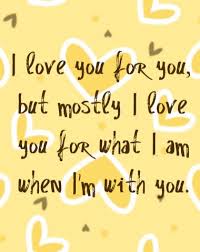 I love you for you,
but mostly I love
you for what I am
when I'm with you.